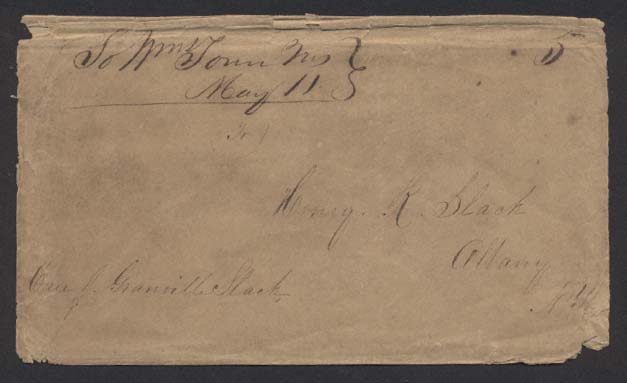 So Wms Town Ms
5
May 11
Henry. K. Slack
Albany
Care J. Granville Slack,